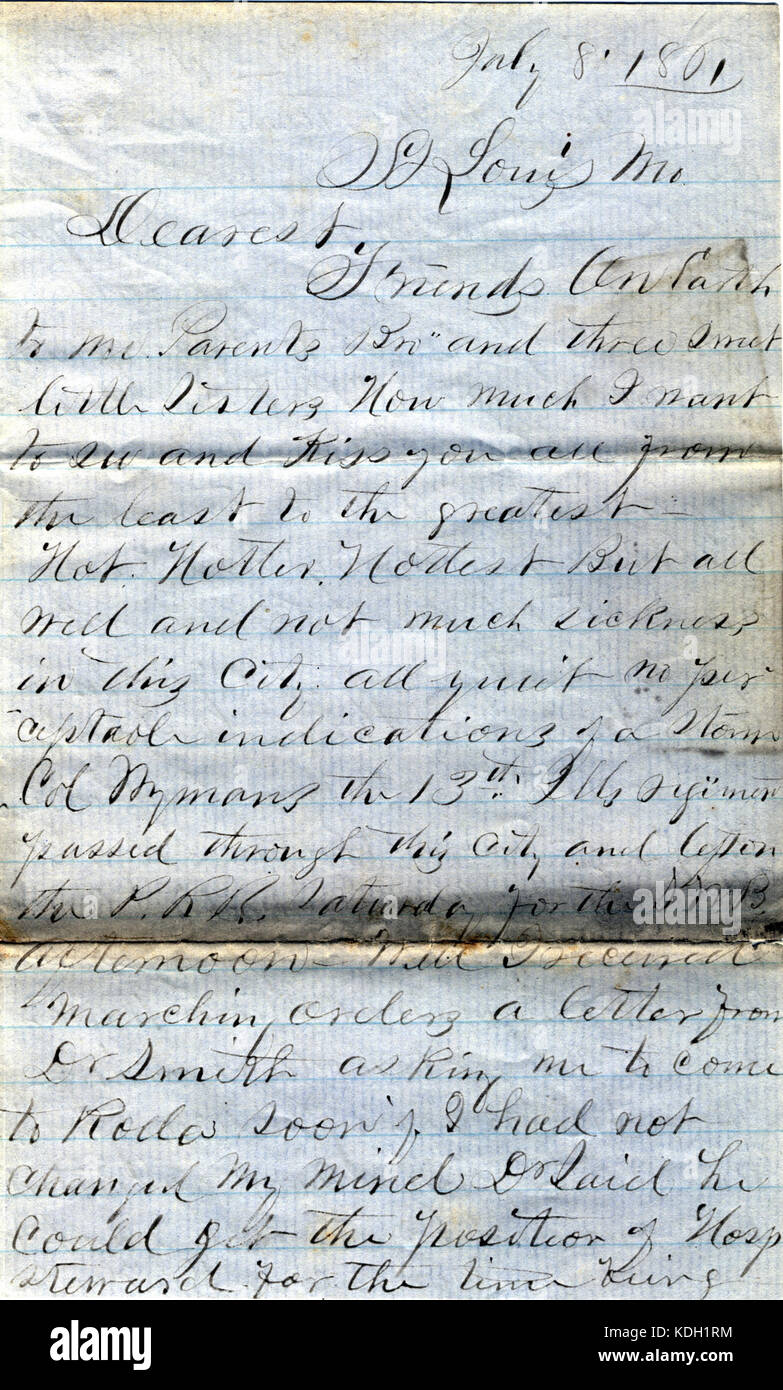 July 8. 1861
St Louis Mo.
Dearest
Friends On Earth
to me. Parents Bro" and three Sweet
little Sisters How much I want
to see and Kiss you all from
the least to the greatest —
Hot. Hotter. Hottest But all
well and not much sickness
in this City. all quiet no per
ceptable indications of a Storm
Col Wymans the 13th. Ills regiment
passed through this city and left on
the P. R R. Saturday for the
afternoon — Well I received
Marching orders a letter from
Dr Smith asking me to come
to Rolla soon if I had not
changed My mind Dr Said he
could get the position of Hosp
steward for the time being
alamy
a
alamy
Image ID: KDH1RM
www.alamy.com